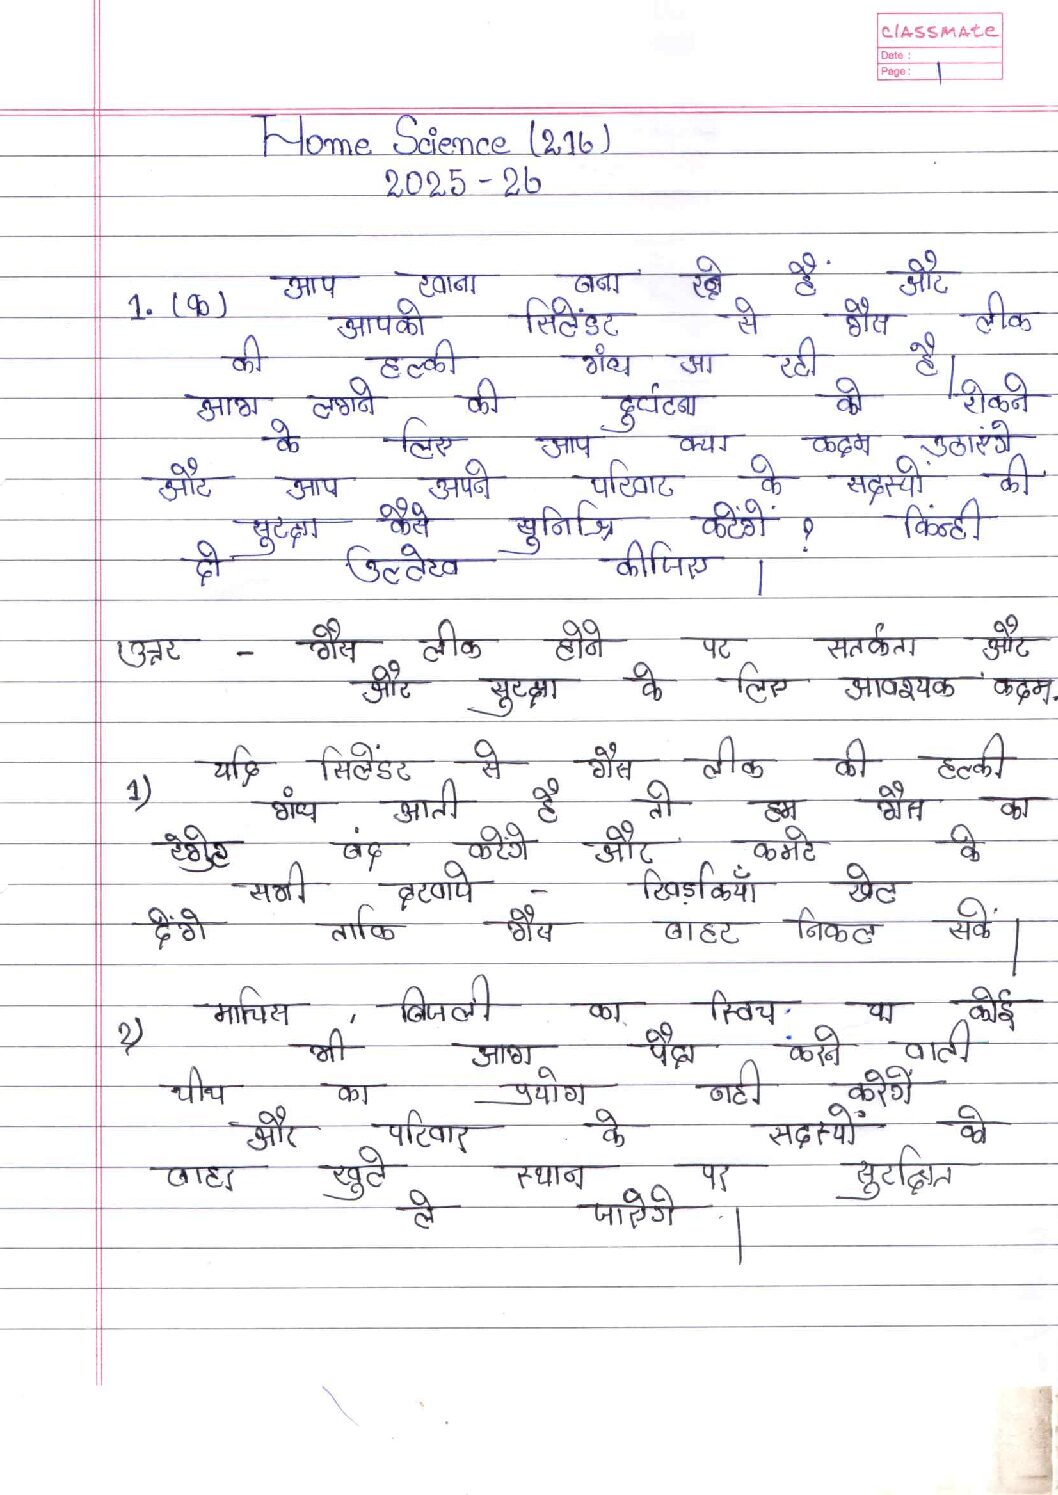 classmate
Date :
Page : 1
Home Science (216)
2025-26
आप खाना बना रहे हैं और
1. (क) आपको सिलेंडर से गैस लीक
की हल्की गंध आ रही है।
आग लगने की दुर्घटना को रोकने
के लिए आप क्या कदम उठाएंगे
और आप अपने परिवार के सदस्यों की
सुरक्षा कैसे सुनिश्चि करेंगें ? किन्ही
दो उल्लेख कीजिए ।
उत्तर - गैस लीक होने पर सतर्कता और
और सुरक्षा के लिए आवश्यक कदम.
यदि सिलेंडर से गैस लीक की हल्की
1) गंध आती है तो हम गैस का
बंद करेंगे और कमरे के
सभी दरवाजे - खिड़कियाँ खोल
देंगे ताकि गैस बाहर निकल सकें ।
माचिस , बिजली का स्विच या कोई
2) भी आग पैदा करने वाली
चीज का प्रयोग नही करेगें
और परिवार के सदस्यों को
बाहर खुले स्थान पर सुरक्षित
ले जाऐगे ।